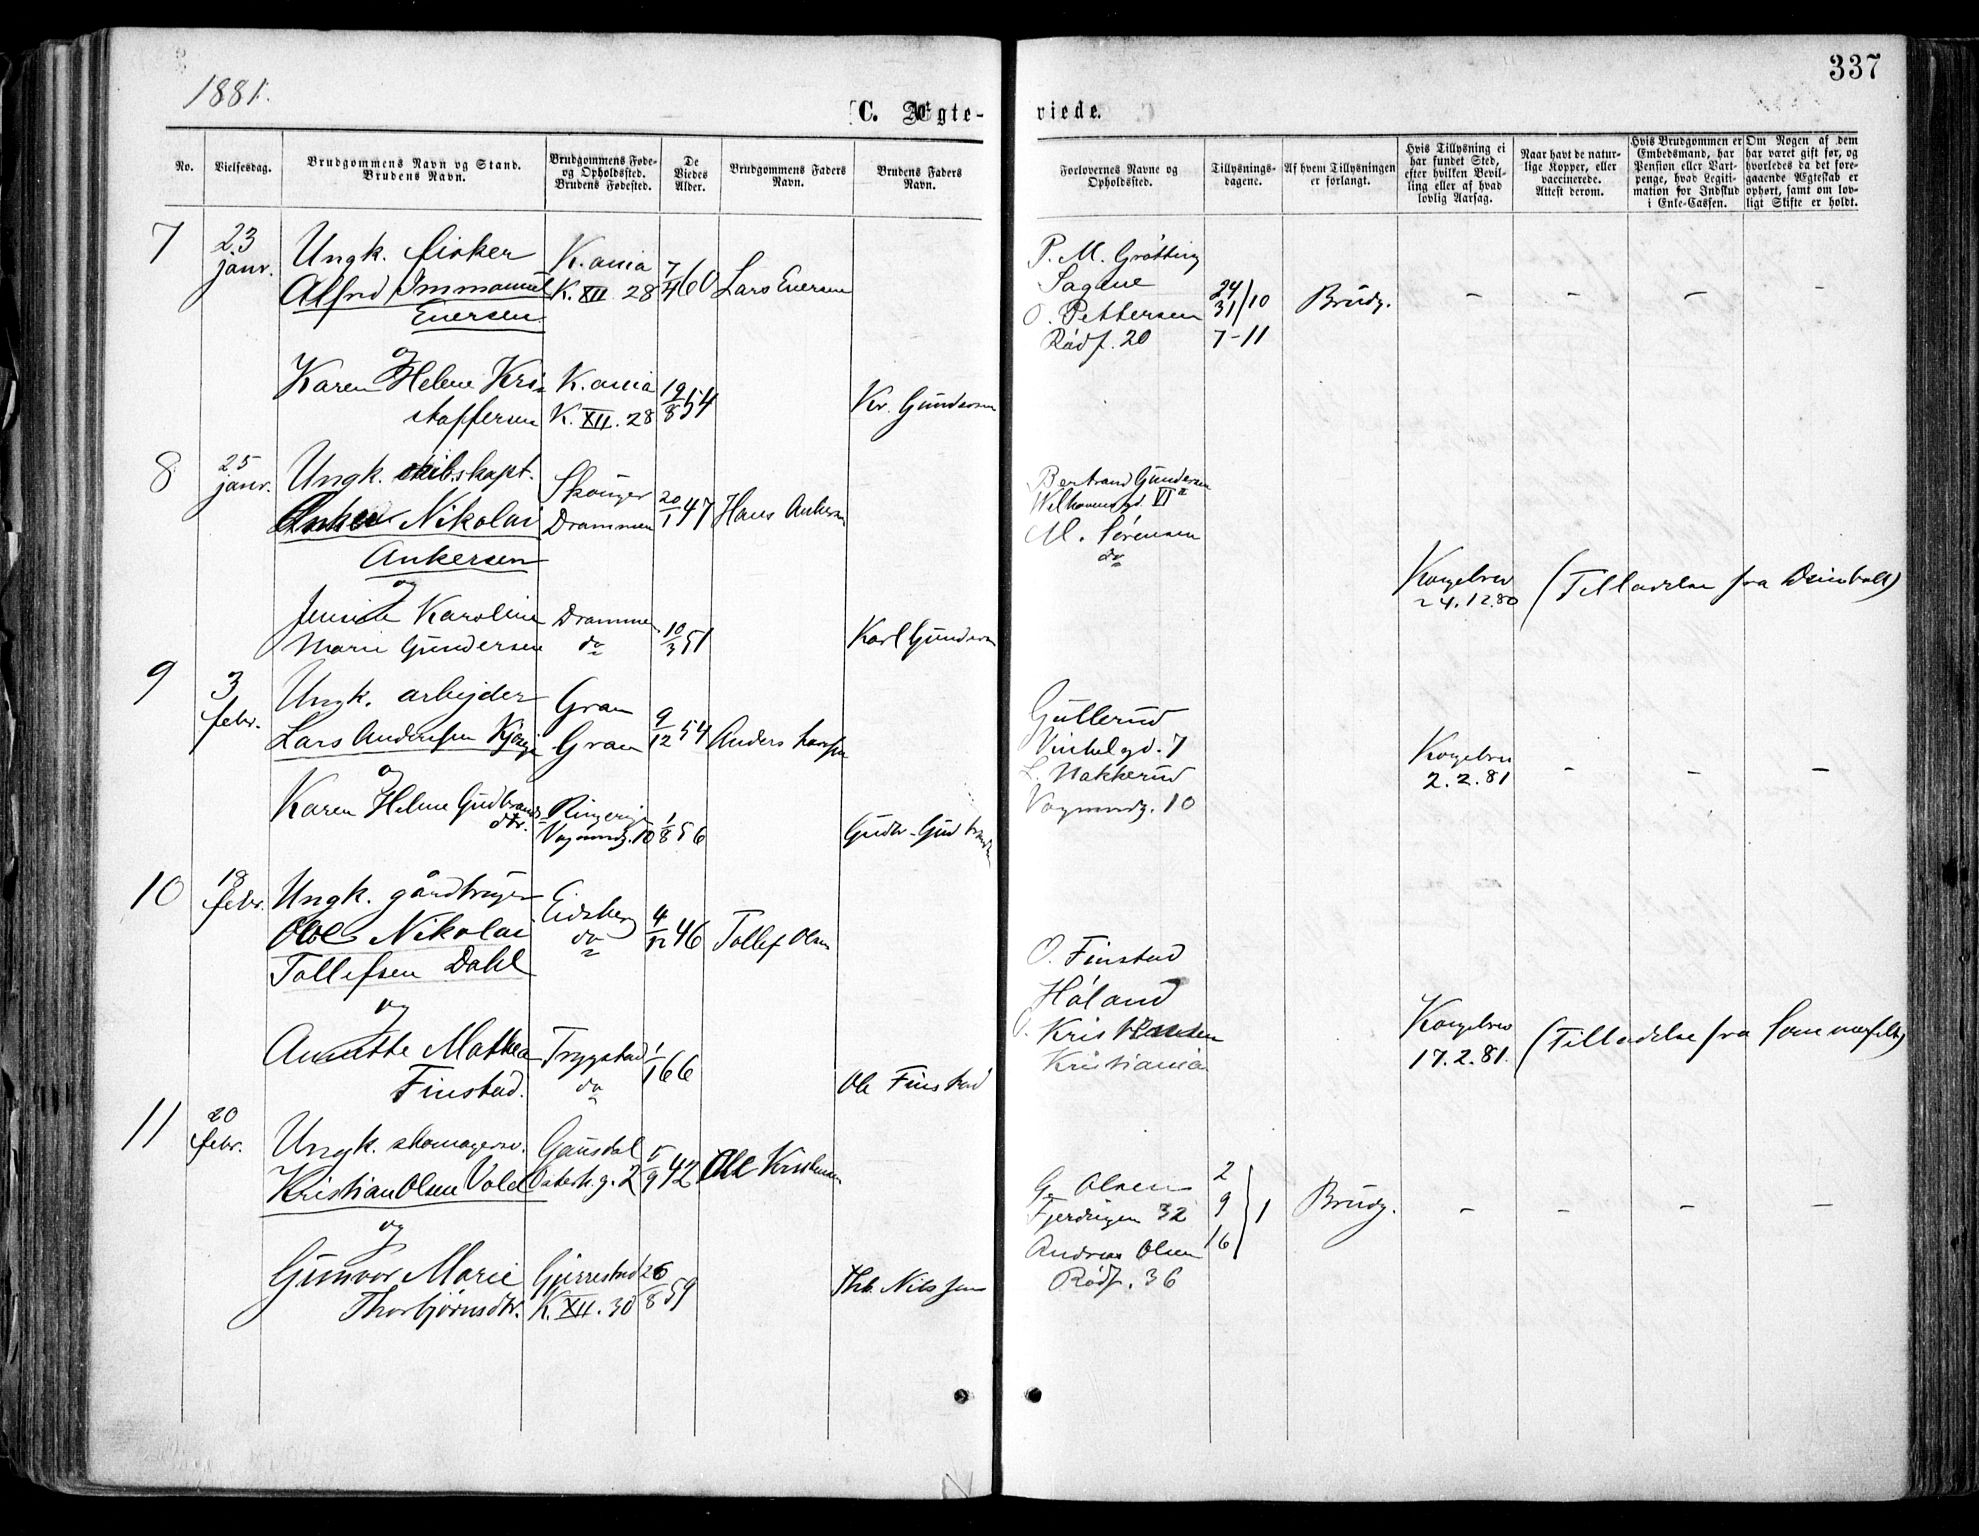 1881.
337
C. Ægte-
viede.
No.
Vielsesdag.
Brudgommens Navn og Stand.
Brudens Navn.
Brudgommens Føde-
og Opholdssted.
Brudens Fødested.
De
Viedes
Alder.
Brudgommens Faders
Navn.
Brudens Faders
Navn.
Forlovernes Navne og
Opholdssted.
Tillysnings-
dagene.
Af hvem Tillysningen
er forlangt.
Hvis Tillysning ei
har fundet Sted,
efter hvilken Bevil-
ling eller af hvad
lovlig Aarsag.
Naar havt de natur-
lige Kopper, eller
vaccinerede.
Attest derom.
Hvis Brudgommen er
Embedsmand, har
Pension eller Vart-
penge, hvad Legiti-
mation for Indskud
i Enke-Cassen.
Om Nogen af dem
har været gift før, og
hvorledes da det fore-
gaaende Ægteskab er
ophørt, samt om lov-
ligt Skifte er holdt.
7
23
janr.
Ungk. fisker
Alfred Immanuel
Enersen
og
Karen Helene Kri-
stoffersen
K.ania
K. XII. 28
K.ania
K. XII. 28
7/4 60
19/8 54
Lars Enersen
Kr. Gundersen
P. M. Grøtting
Sagene
O. Pettersen
Rødf. 20
24
31/10
7-11
Brudg.
- - - -
8
25
janr.
Ungk. skibskapt.
Anker Nikolai
Ankersen
og
Karoline
Marie Gundersen
Skouger
Drammen
Drammen
do
20/1 47
10/3 51
Hans Ankersen
Karl Gundersen
Bertrand Gundersen
VI
M. Sørensen
do
Kongebrev
24.12.80
(Tilladelse fra
9
3
febr.
Ungk. arbejder
Lars Andersen
og
Karen Helene Gudbrands-
dtr.
Gran
Gran
Ringerige
Vognmdg. 10
9/12 54
1/8 56
Anders Larssen
Gudbr. Gudbrandsen
Gullerud
Vinkelgd. 7
L. Hakkerud
Vognmdg. 10
Kongebrev
2.2.81
- - -
10
18
febr.
Ungk. gårdbruger
Ole Nikolai
Tollefsen Dahl
og
Annette Mathea
Finstad.
Eidsberg
do
Trygstad
do
4/12 46
1/1 66
Tollef Olsen
Ole Finstad
O. Finstad
Høland
O. Kristiansen
Kristiania
Kongebrev
17.2.81.
(Tilladelse fra Sommerfelt)
11
20
febr.
Ungk. skomagersv.
Kristian Olsen Vold
og
Gunvor Marie
Thorbjørnsdtr.
Gausdal
Osterh.g. 2
Gjerrestad
K. XII. 30
5/9 42
26/8 59
Ole Kristensen
Thb. Nilssen
G. Olsen
Fjerdingen 32
Andreas Olsen
Rødf. 36
2
9
16
1
Brudg.
- - - -